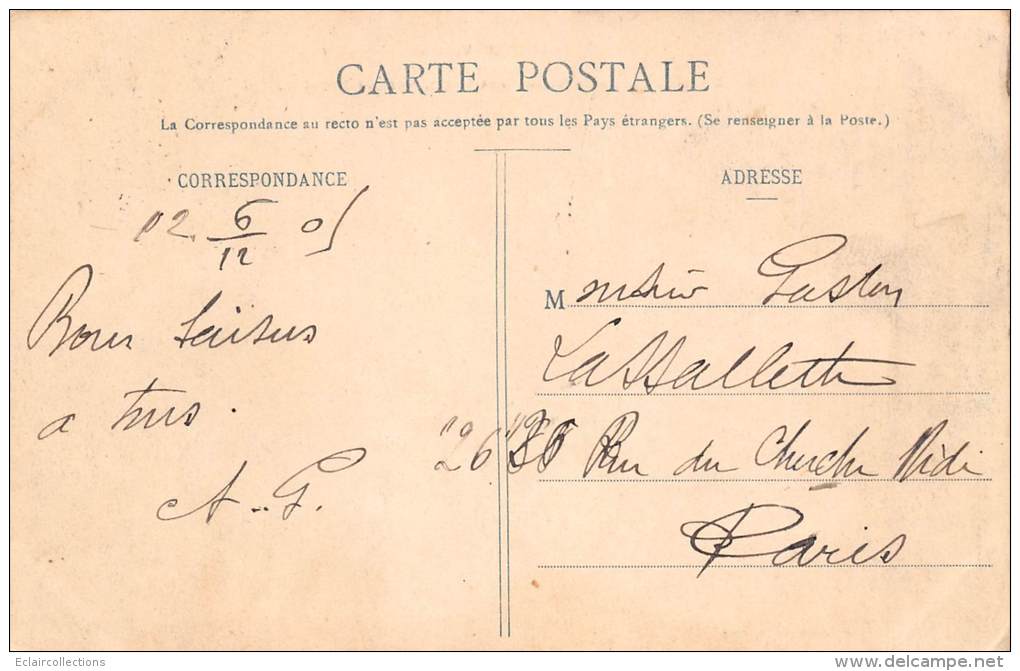 CARTE POSTALE
La Correspondance au recto n'est pas acceptée par tous les Pays étrangers. (Se renseigner à la Poste.)
CORRESPONDANCE
ADRESSE
6/12 05
Bons baisers
a tous.
A. G.
Monsieur Gaston
Lassallette
26 Rue du Cherche Midi
Paris
Eclaircollections
delcampe.net